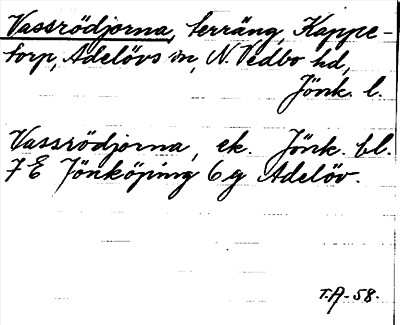 Vassrödjorna, terräng, Kappe-
torp, Adelövs sn, N. Vedbo hd,
Jönk. l.
Vassrödjorna, ek. Jönk. bl.
7 E Jönköping 6 g Adelöv.
T.A-58.